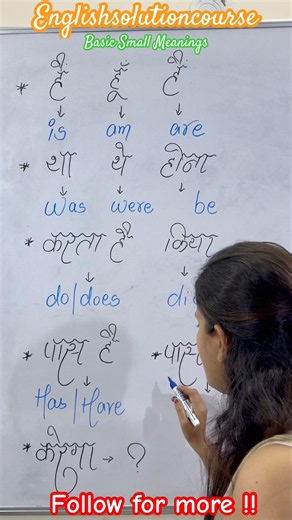 Englishsolutioncourse
Basic Small Meanings
* है हूँ हैं
↓ ↓ ↓
is am are
* था थे होना
↓ ↓ ↓
was were be
* करता है किया
↓
do/does
* पास है *
↓
Has/Have
* करेगा → ?
Follow for more !!